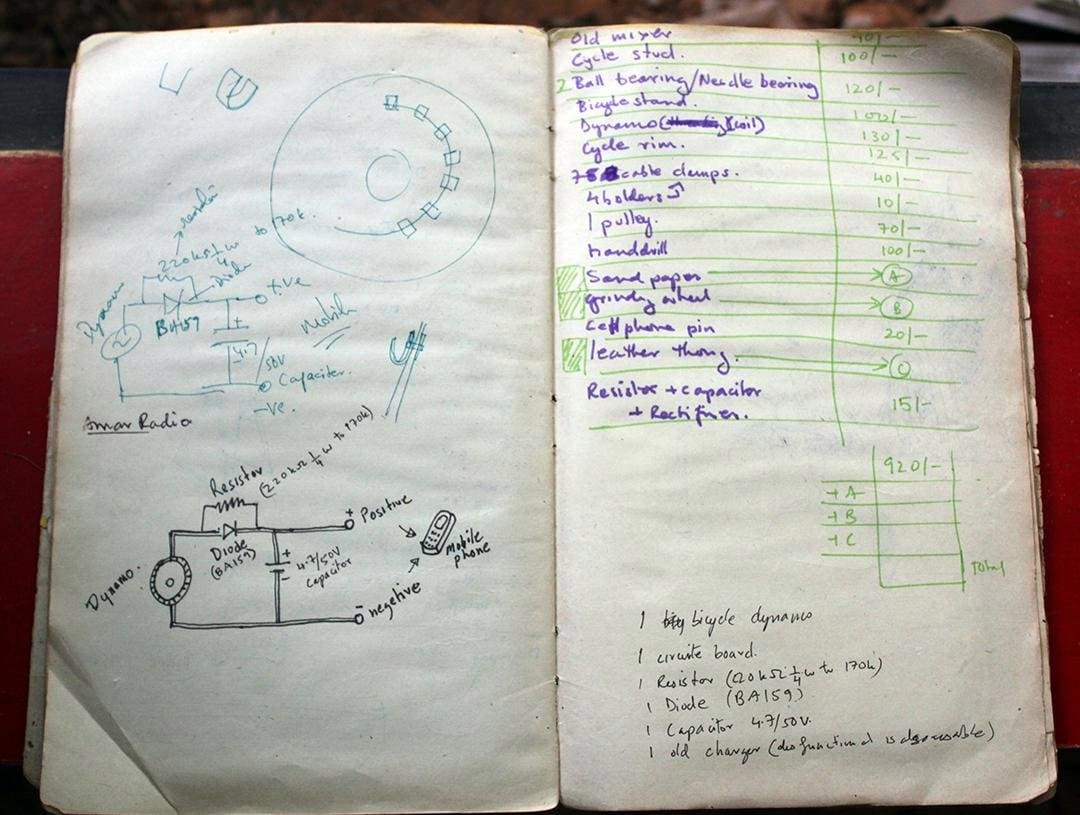 resistor
220kΩ 1/4 w to 170k.
Diode
Dynamo
BA159
+ive
+
4.7/50V
Mobile
Capaciter.
-ive.
Amar Radio
Resistor
(220kΩ 1/4 w to 170k)
+
Positive
Diode
(BA159)
+
4.7/50V
capacitor
-
mobile
phone
Dynamo.
-
negetive
Old mixer
Cycle stud. 100/-
2 Ball bearing/Needle bearing 120/-
Bicycle stand. 100/-
Dynamo (coil) 130/-
Cycle rim. 125/-
cable clamps. 40/-
4 holders 10/-
1 pulley. 70/-
Handdrill 100/-
Sand paper A
grindg wheel B
Cell phone pin 20/-
leather thong. C
Resistor + capacitor 15/-
+ Rectifier.
920/-
+ A
+ B
+ C
Total
1 bicycle dynamo
1 circuite board.
1 Resistor (220kΩ 1/4 w to 170k)
1 Diode (BA159)
1 Capacitor 4.7/50V.
1 old charger